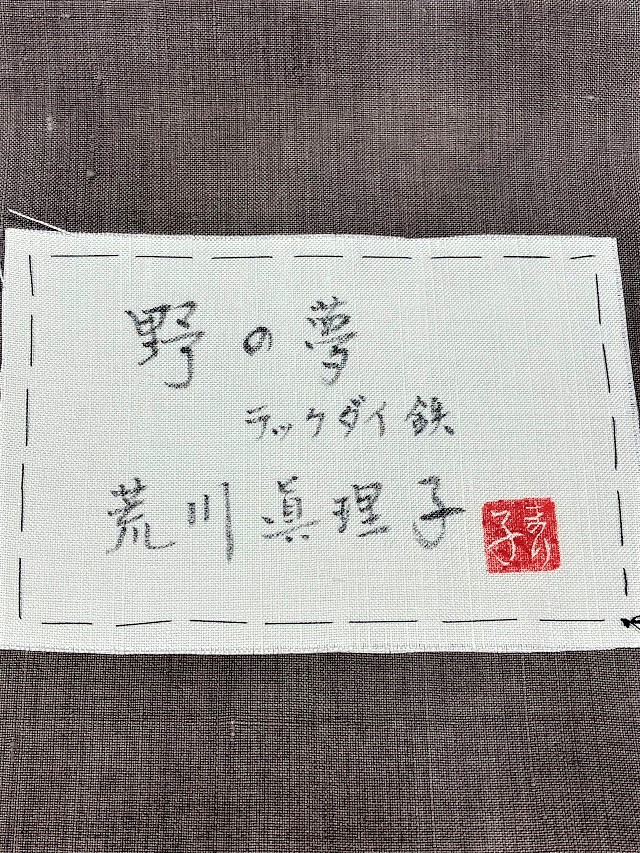 野の夢
ラックダイ鉄
荒川眞理子
まり子